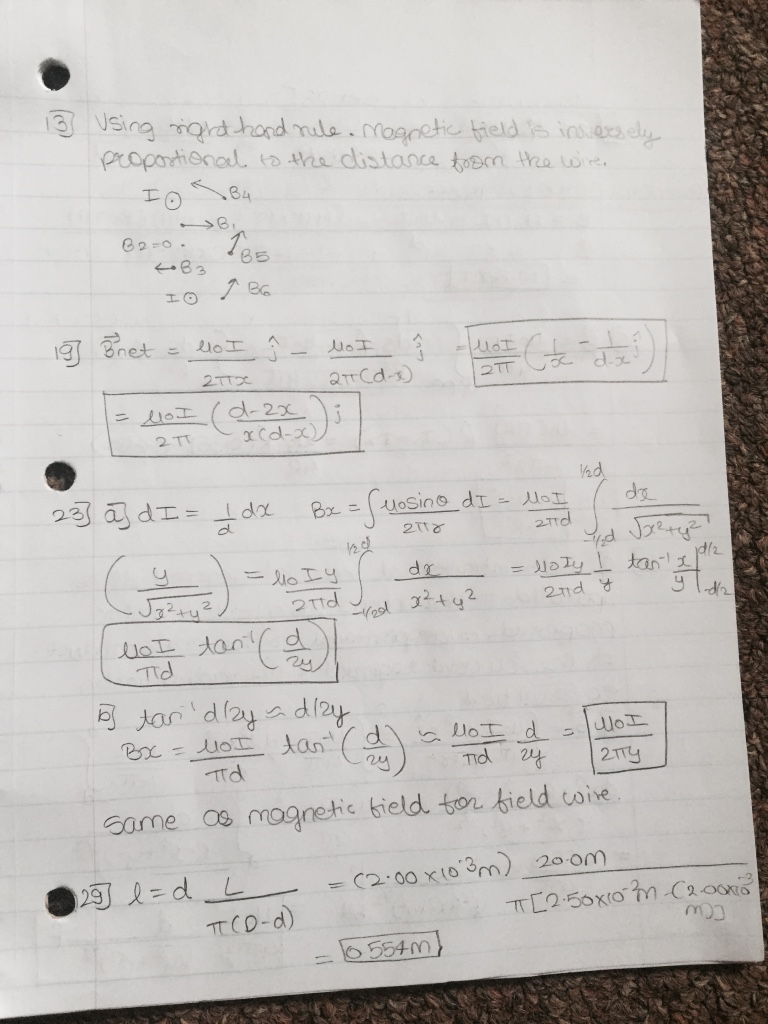 13] Using right hand rule. Magnetic field is inversely
proportional to the distance from the wire.
I ⊙ B4
→ B1
B2=0 .
B5
← B3
I ⊙ B6
19] B⃗net = μoI/2πx ĵ - μoI/2π(d-x) ĵ = μoI/2π (1/x - 1/d-x ĵ)
= μoI/2π (d-2x/x(d-x)) j
23] a] dI = 1/d dx Bx = ∫ μosinθ/2πr dI = μoI/2πd ∫_{-1/2d}^{1/2d} dx/√x²+y²
(y/√x²+y²) = μoIy/2πd ∫_{-1/2d}^{1/2d} dx/x²+y² = μoIy/2πd 1/y tan⁻¹ x/y |_{-d/2}^{d/2}
μoI/πd tan⁻¹ (d/2y)
b] tan⁻¹ d/2y ≈ d/2y
Bx = μoI/πd tan⁻¹ (d/2y) ≈ μoI/πd d/2y = μoI/2πy
same as magnetic field for field wire.
29] l = d L/π(D-d) = (2.00×10⁻³m) 20.0m/π[2.50×10⁻²m - (2.00×10⁻³m)]
= 0.554m